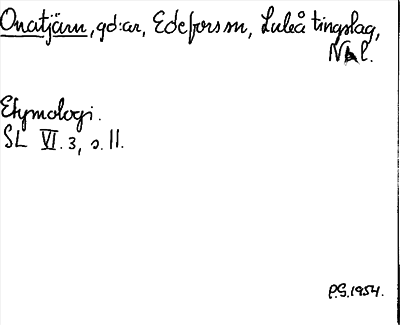 Onatjärn, gd:ar, Edefors sn, Luleå tingslag,
Nbl.
Etymologi.
SL VI. 3, s. 11.
P.G. 1954.